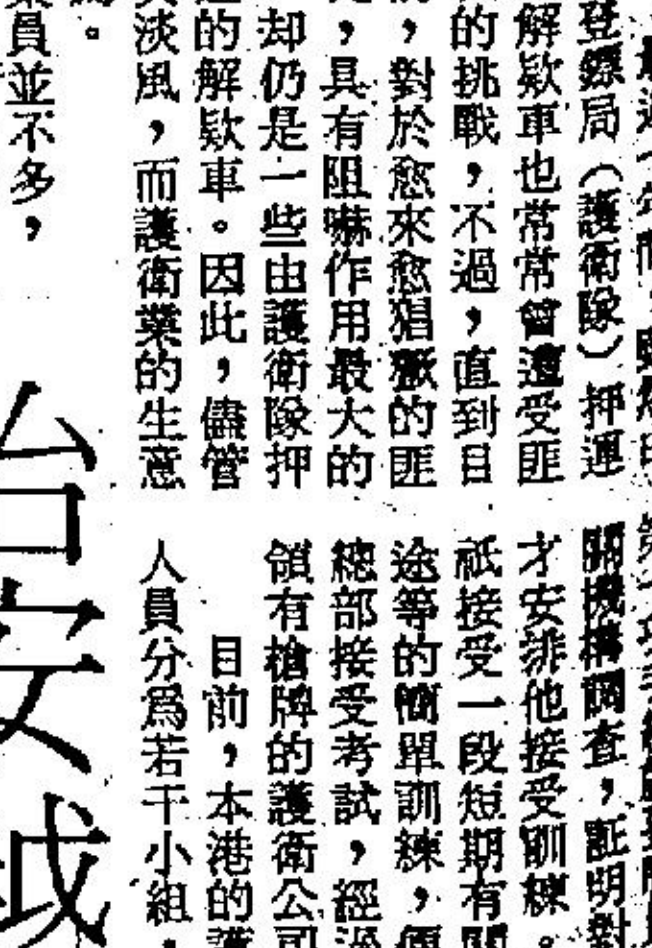 登鏢局（護衛隊）押運
解欵車也常常曾遭受匪
的挑戰，不過，直到目
，對於愈來愈猖獗的匪
，具有阻嚇作用最大的
却仍是一些由護衛隊押
的解欵車。因此，儘管
淡風，而護衛業的生意
。
員並不多，
關機構調查，証明對
才安排他接受訓練。
祇接受一段短期有關
途等的簡單訓練，便
總部接受考試，經過
領有槍牌的護衛公司
目前，本港的護
人員分爲若干小組，
治安越